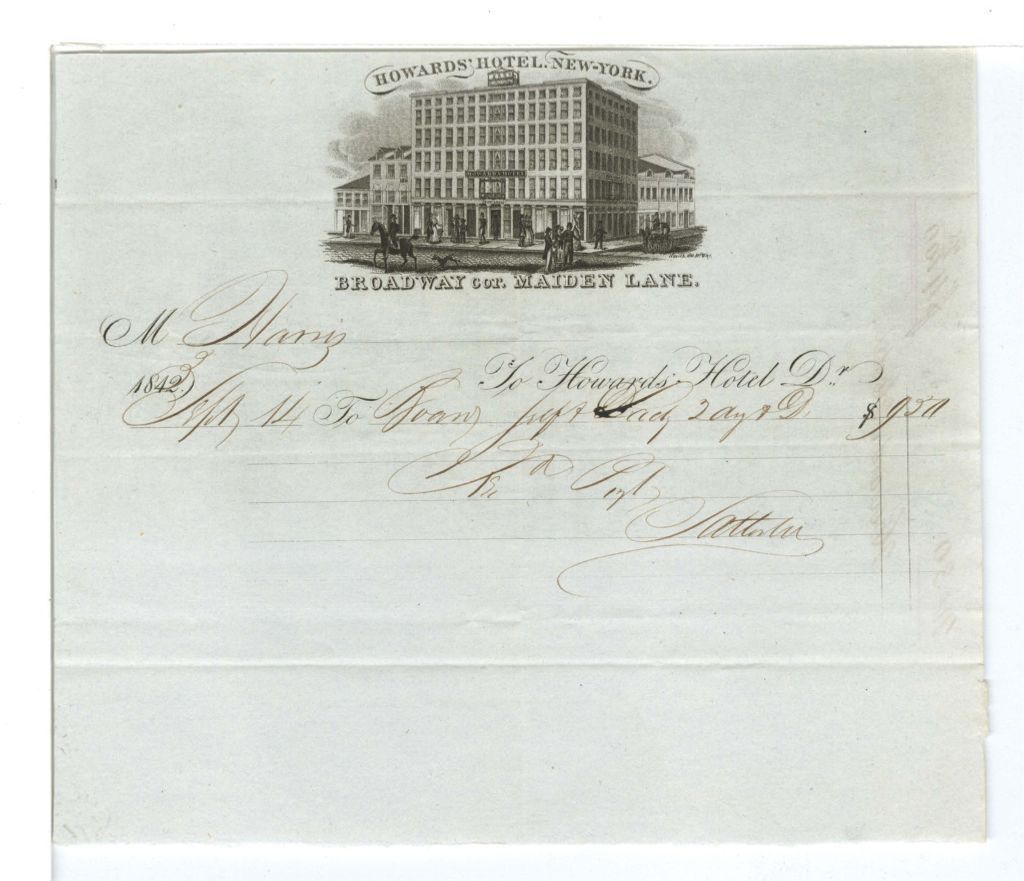 HOWARDS' HOTEL. NEW-YORK.
HOWARDS HOTEL
BROADWAY cor. MAIDEN LANE.
M Harris
1842 3 To Howards' Hotel Dr.
Sept 14 To Board self Lady 2 days $ 9 50
Rec d Payt